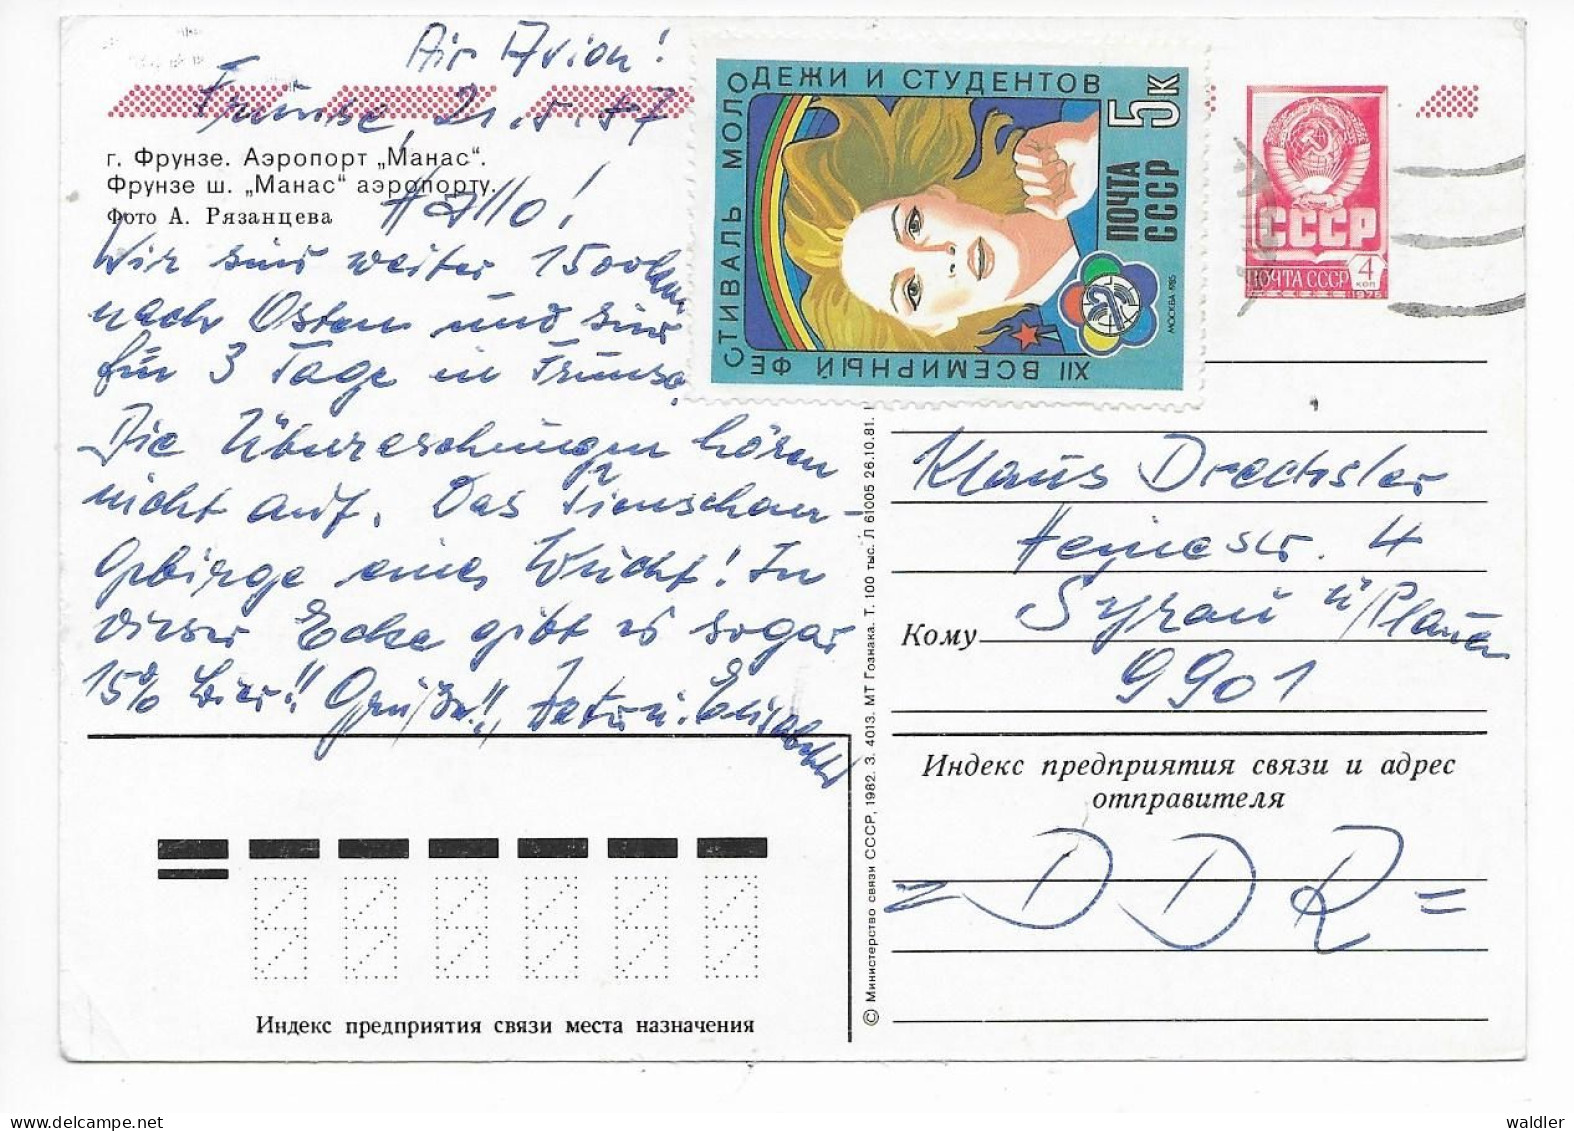 Air Avion!
Frunse, 21.5.87
г. Фрунзе. Аэропорт „Манас“.
Фрунзе ш. „Манас“ аэропорту.
Фото А. Рязанцева
Hallo!
Wir sind weiter 1500km
nach Osten und sind
für 3 Tage in Frunse.
Die Überraschungen hören
nicht auf. Das Tienschan-
Gebirge eine Wucht! In
dieser Ecke gibt es sogar
15% Bier!! Grüße!!, u. Elisabeth
XII ВСЕМИРНЫЙ ФЕСТИВАЛЬ МОЛОДЕЖИ И СТУДЕНТОВ
5К
ПОЧТА
СССР
МОСКВА 1985
СССР
ПОЧТА СССР 4
КОП
1976
Klaus Drechsler
Heinestr. 4
Кому Syrau ü/Plauen
9901
Индекс предприятия связи и адрес
отправителя
= DDR =
Индекс предприятия связи места назначения
© Министерство связи СССР, 1982. З. 4013. МТ Гознака. Т. 100 тыс. Л 61005 26.10.81.
waldler